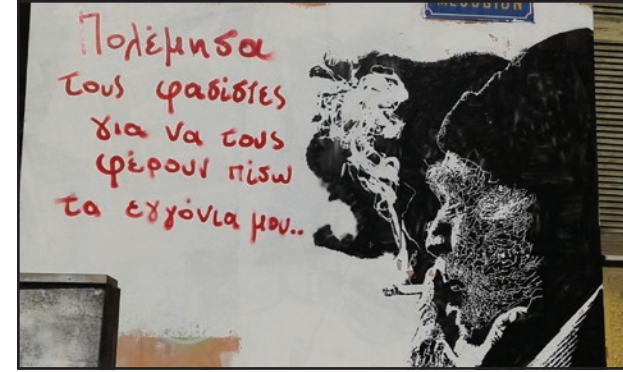 ΜΕΣΟΓΙΩΝ
Πολέμησα
τους φασίστες
για να τους
φέρουν πίσω
τα εγγόνια μου..